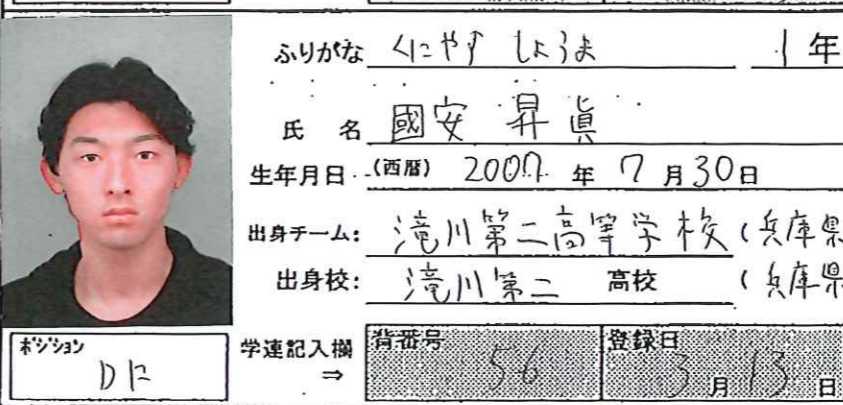 ふりがな くにやす しょうま 1年
氏 名 國安 昇眞
生年月日 (西暦) 2007 年 7 月 30 日
出身チーム: 滝川第二高等学校 (兵庫県
出身校: 滝川第二 高校 (兵庫県
ポジション
学連記入欄 ⇒
背番号 56
登録日 3 月 13 日